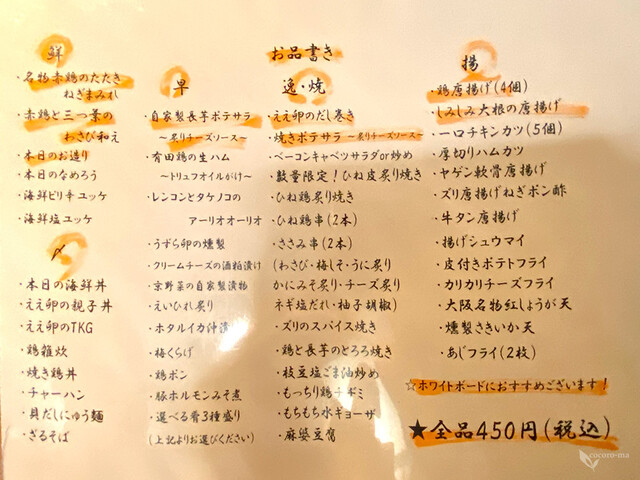 お品書き
鮮
・名物赤鶏のたたき
ねぎまみれ
・赤鶏と三つ葉の
わさび和え
・本日のお造り
・本日のなめろう
・海鮮ピリ辛ユッケ
・海鮮塩ユッケ
〆
・本日の海鮮丼
・ええ卵の親子丼
・ええ卵のTKG
・鶏雑炊
・焼き鶏丼
・チャーハン
・貝だしにゅう麺
・ざるそば
早
・自家製長芋ポテサラ
〜炙りチーズソース〜
・有田鶏の生ハム
〜トリュフオイルがけ〜
・レンコンとタケノコの
アーリオオーリオ
・うずら卵の燻製
・クリームチーズの酒粕漬け
・京野菜の自家製漬物
・えいひれ炙り
・ホタルイカ沖漬
・梅くらげ
・鶏ポン
・豚ホルモンみそ煮
・選べる肴3種盛り
(上記よりお選びください)
逸・焼
・ええ卵のだし巻き
・焼きポテサラ 〜炙りチーズソース〜
・ベーコンキャベツサラダor炒め
・数量限定!ひね皮炙り焼き
・ひね鶏炙り焼き
・ひね鶏串(2本)
・ささみ串(2本)
(わさび・梅しそ・うに炙り
かにみそ炙り・チーズ炙り
ネギ塩だれ・柚子胡椒)
・ズリのスパイス焼き
・鶏と長芋のとろろ焼き
・枝豆塩ごま油炒め
・もっちり鶏チヂミ
・もちもち水ギョーザ
・麻婆豆腐
揚
・鶏唐揚げ(4個)
・しみしみ大根の唐揚げ
・一口チキンカツ(5個)
・厚切りハムカツ
・ヤゲン軟骨唐揚げ
・ズリ唐揚げねぎポン酢
・牛タン唐揚げ
・揚げシュウマイ
・皮付きポテトフライ
・カリカリチーズフライ
・大阪名物紅しょうが天
・燻製さきいか天
・あじフライ(2枚)
☆ホワイトボードにおすすめございます!
★全品450円(税込)
cocoru-ma